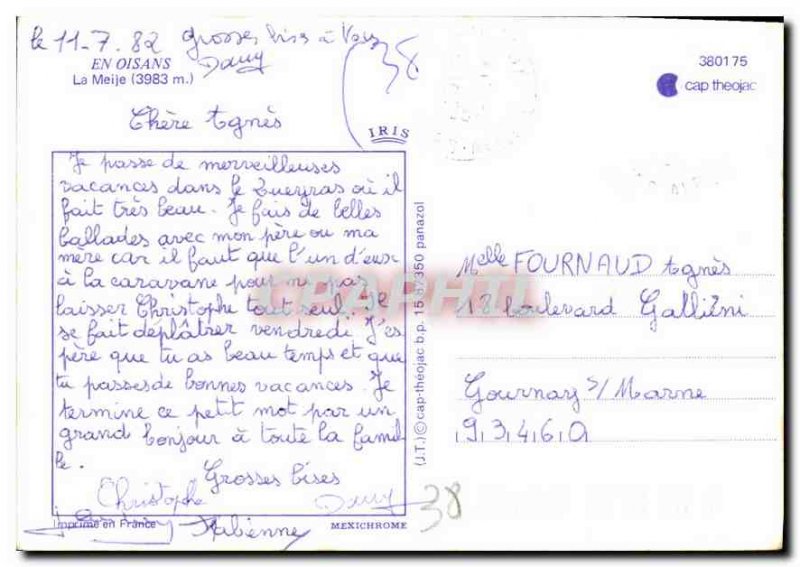 le 11-7.82 grosses bises à Vous
Dany
EN OISANS
La Meije (3983 m.)
38
IRIS
380175
cap theojac
Chère Agnès
Je passe de merveilleuses
vacances dans le Queyras où il
fait très beau. Je fais de belles
ballades avec mon père ou ma
mère car il faut que l'un d'eux
à la caravane pour ne pas
laisser Christophe tout seul. Je
se fait déplâtrer vendredi J'es
père que tu as beau temps et que
tu passes de bonnes vacances. Je
termine ce petit mot par un
grand bonjour à toute la famil
le.
Grosses bises
Christophe Dany
Fabienne
Imprimé en France
MEXICHROME
38
(J.T.) © cap-théojac b.p. 15 87350 panazol
CPAPHIL
Melle FOURNAUD Agnès
12 boulevard Galliéni
Gournay s/Marne
93460